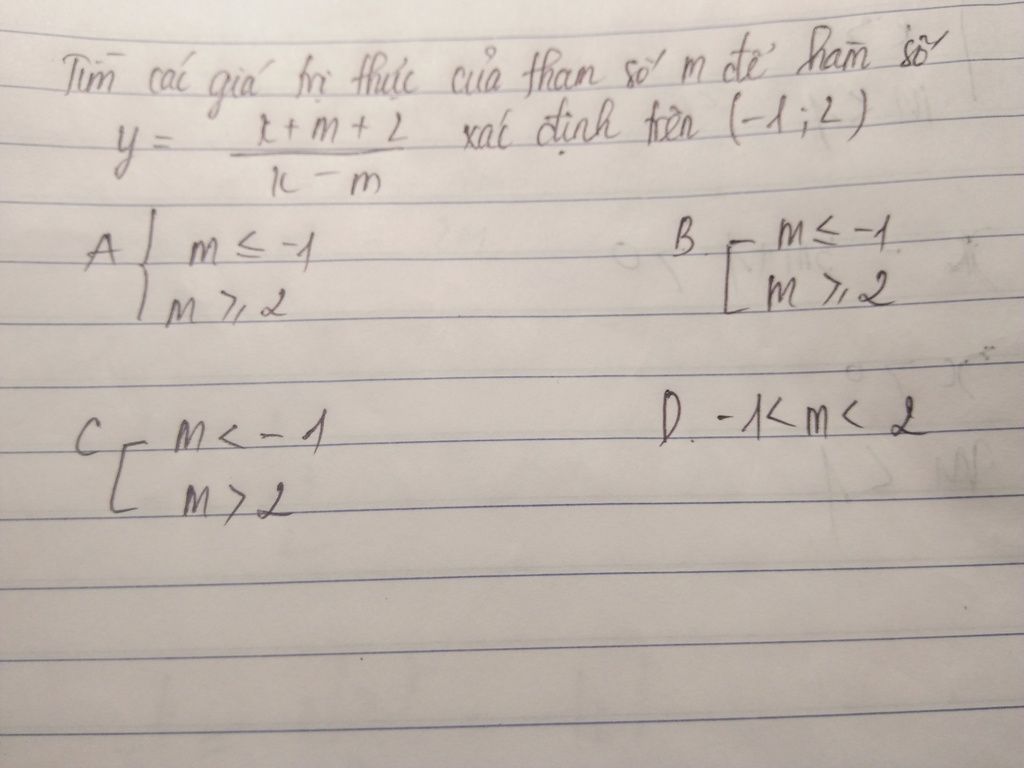 Tìm các giá trị thực của tham số m để hàm số
y = x + m + 2 / x - m xác định trên (-1 ; 2)
A { m ≤ -1
m ≥ 2
B [ m ≤ -1
m ≥ 2
C [ m < -1
m > 2
D. -1 < m < 2